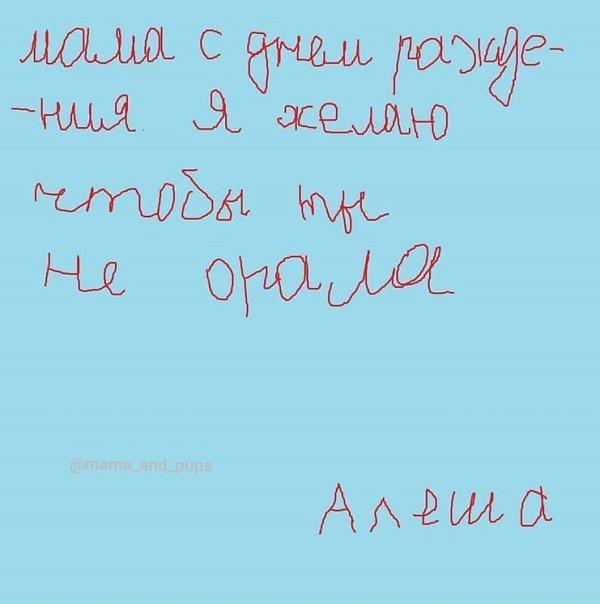 мама с днем ражде-
-ния. я желаю
чтобы ты
не орала
@mama_and_pups
Алеша